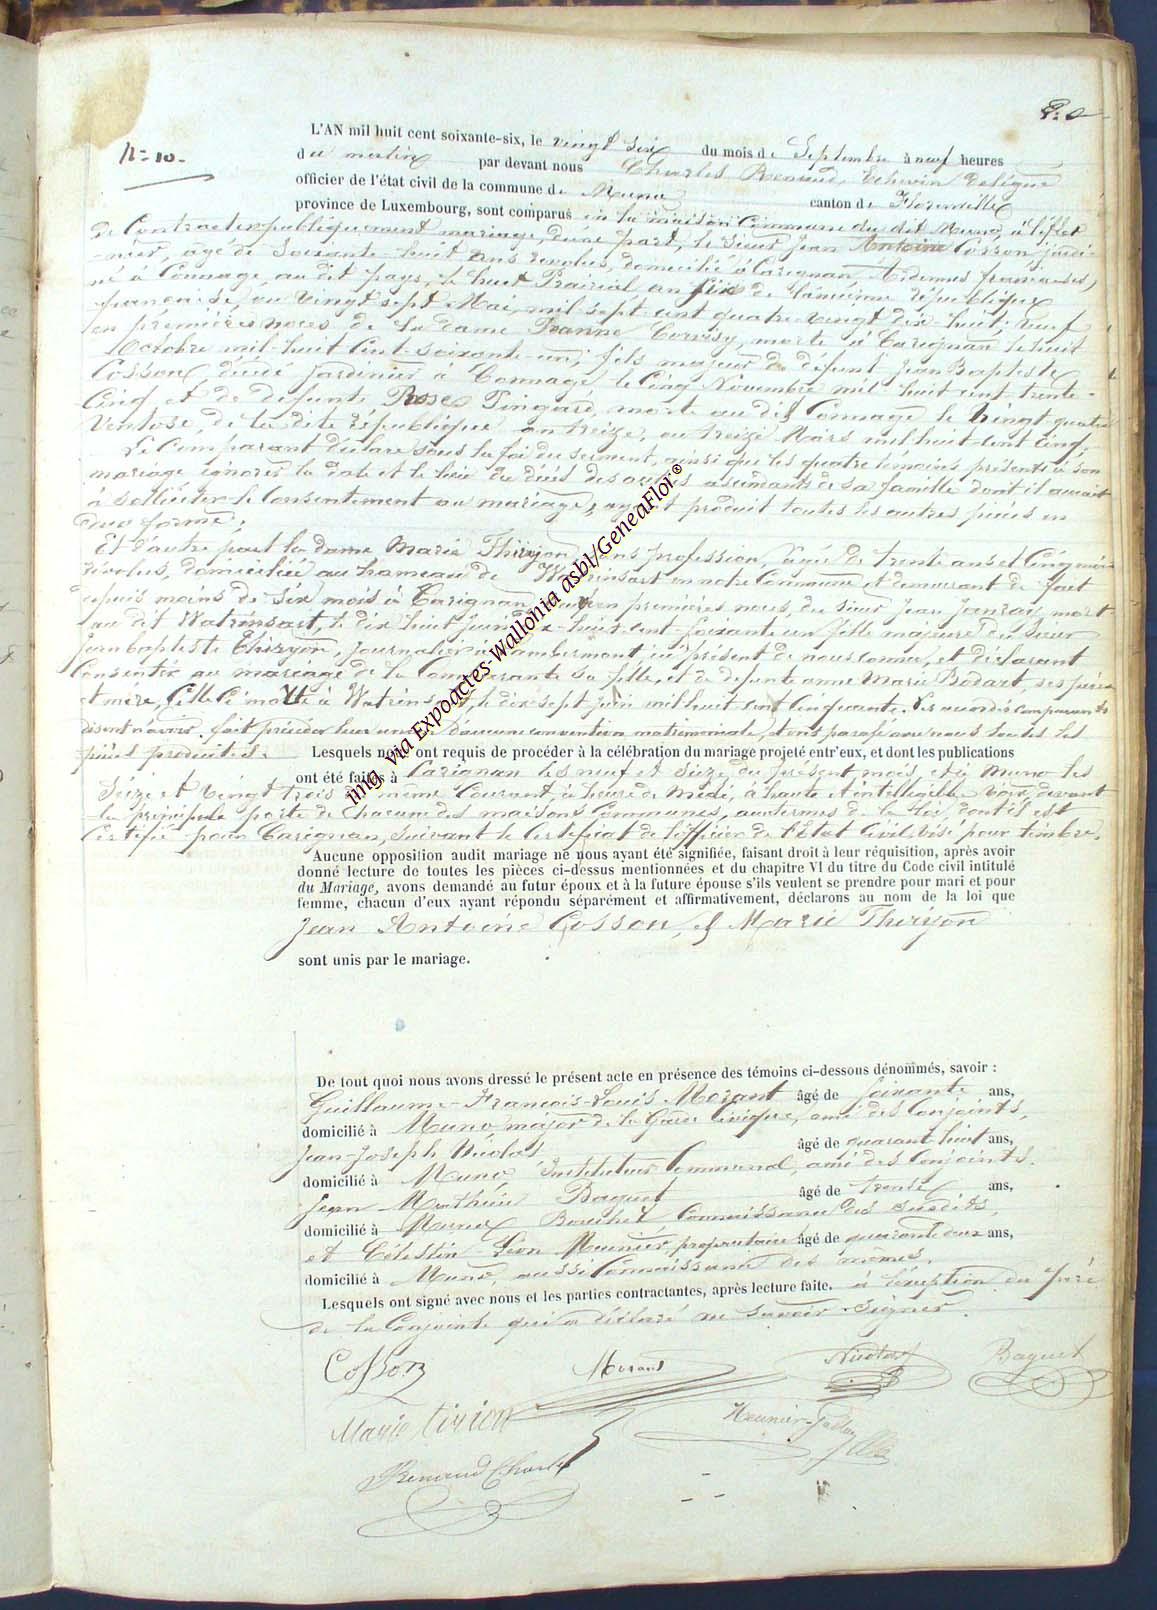 N° 10.
L'AN mil huit cent soixante-six, le vingt six du mois de Septembre à neuf heures
du matin par devant nous Charles Renaud, Echevin délégué
officier de l'état civil de la commune de Muno canton de Florenville
province de Luxembourg, sont comparus en la maison Commune du dit Muno, à l'effet
de Contracter publiquement mariage, d'une part, le Sieur Jean Antoine Cosson, jardi-
-nier, agé de Soixante-huit ans révolus, domicilié à Carignan (Ardennes françaises,)
né à Connage, au dit pays, le huit Prairial an six de l'ancienne république
française, ou vingt sept Mai, mil sept cent quatre-vingt dix-huit; veuf
en premières noces de la dame Jeanne Corvisy, morte à Carignan le huit
Octobre mil-huit Cent-soixante-un; fils majeur de défunt Jean Baptiste
Cosson, décédé Jardinier à Connage, le Cinq Novembre mil huit cent trente-
Cinq et de défunte Rose Tingaré, morte au dit Connage le vingt quatre
Ventose, de la dite république an treize, ou treize Mars mil huit-cent cinq.
Le Comparant déclare sous la foi du serment, ainsi que les quatre témoins présents à son
mariage ignorer la date et le lieu du décès des autres ascendants de sa famille dont il aurait
à solliciter le Consentement au mariage, ayant produit toutes les autres pièces en
due forme.
Et d'autre part la dame Marie Thiryon, sans profession, agée de trente ans et Cinq mois
révolus, domiciliée au hameau de Watrinsart en notre Commune et demeurant de fait
depuis moins de six mois à Carignan, veuve en premières noces du sieur Jean mort
au dit Watrinsart, le dix huit mil-huit-cent-soixante un fille majeure du Sieur
Jean baptiste Thiryon, Journalier à Lambermont ici présent de nous connu, et déclarant
Consentir au mariage de la Comparante sa fille, et de défunte dame Marie Bodart, ses père
et mère, Celle ci morte à Watrinsart, le dix sept juin mil huit cent Cinquante. Les seconds comparants
disent n'avoir fait précéder leur union d'aucune convention matrimoniale, et ont paraphé avec nous toutes les
pièces produites.
Lesquels nous ont requis de procéder à la célébration du mariage projeté entr'eux, et dont les publications
ont été faites à Carignan les neuf et Seize du présent mois, et à Muno les
Seize et Vingt trois du même Courant, à heure de Midi, à haute et intelligible voix, devant
la principale porte de chacune des maisons Communes, aux termes de la loi, dont il est
Certifié pour Carignan, Suivant le Certificat de l'officier de l'Etat Civil visé pour timbre.
Aucune opposition audit mariage ne nous ayant été signifiée, faisant droit à leur réquisition, après avoir
donné lecture de toutes les pièces ci-dessus mentionnées et du chapitre VI du titre du Code civil intitulé
du Mariage, avons demandé au futur époux et à la future épouse s'ils veulent se prendre pour mari et pour
femme, chacun d'eux ayant répondu séparément et affirmativement, déclarons au nom de la loi que
Jean Antoine Cosson, & Marie Thiryon
sont unis par le mariage.
De tout quoi nous avons dressé le présent acte en présence des témoins ci-dessous dénommés, savoir :
Guillaume-François-Louis Morant âgé de soixante ans,
domicilié à Muno, major de la Garde Civique, ami des Conjoints,
Jean-Joseph Nicolas âgé de quarant huit ans,
domicilié à Muno Instituteur Communal, ami des Conjoints.
Jean Mathieu Baquet âgé de trente ans,
domicilié à Muno Connaissance des susdits,
et Célestin Léon Meunier, propriétaire âgé de quarante deux ans,
domicilié à Muno, aussi Connaissance des mêmes.
Lesquels ont signé avec nous et les parties contractantes, après lecture faite. à l'éxception du père
de la Conjointe qui a déclaré ne savoir signer.
Cosson Morant Nicolas Baquet
Marie tirion Meunier
Renaud Charles
imlg via Expoactes-Wallonia asbl/GeneaFloi®